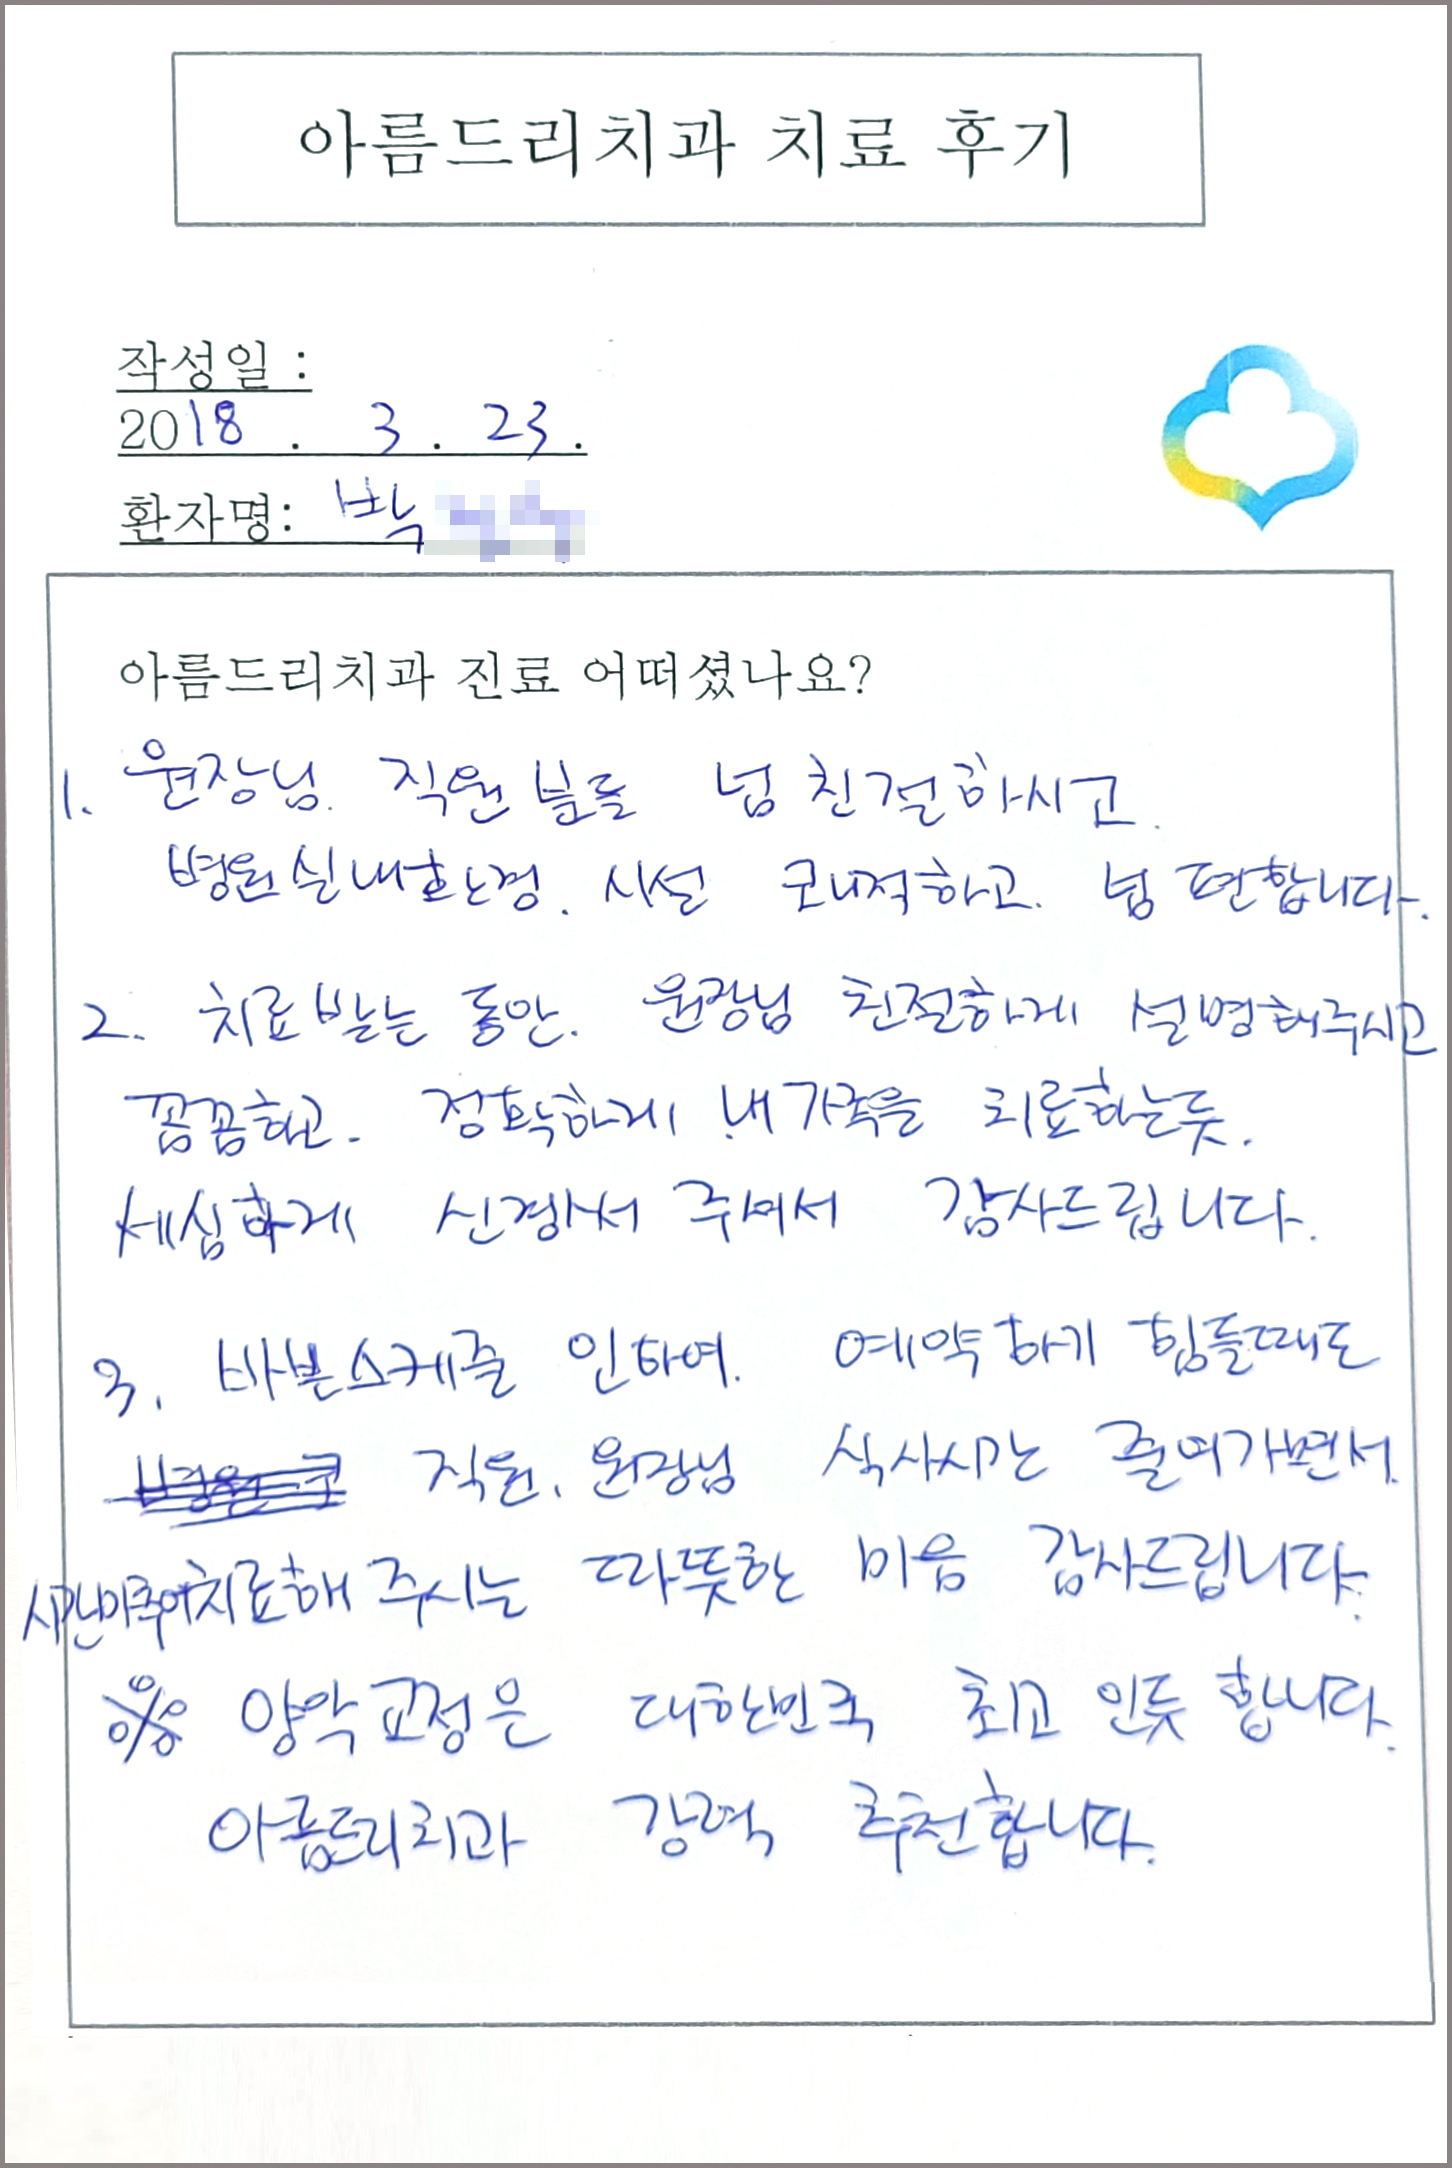 아름드리치과 치료 후기
작성일 :
2018 . 3 . 23 .
환자명: 박
아름드리치과 진료 어떠셨나요?
1. 원장님. 직원분들 넘 친절하시고.
병원실내환경. 시설 쾌적하고. 넘 편합니다.
2. 치료받는 동안. 원장님 친절하게 설명해주시고
꼼꼼하고. 정확하게 내가족을 치료하는듯.
세심하게 신경써서 주셔서 감사드립니다.
3. 바쁜스케줄 인하여. 예약하기 힘들때도
직원. 원장님 식사시간 줄여가면서.
시간맞추어치료해 주시는 따뜻한 마음 감사드립니다.
※ 양악교정은 대한민국 최고 인듯 합니다.
아름드리치과 강력 추천합니다.